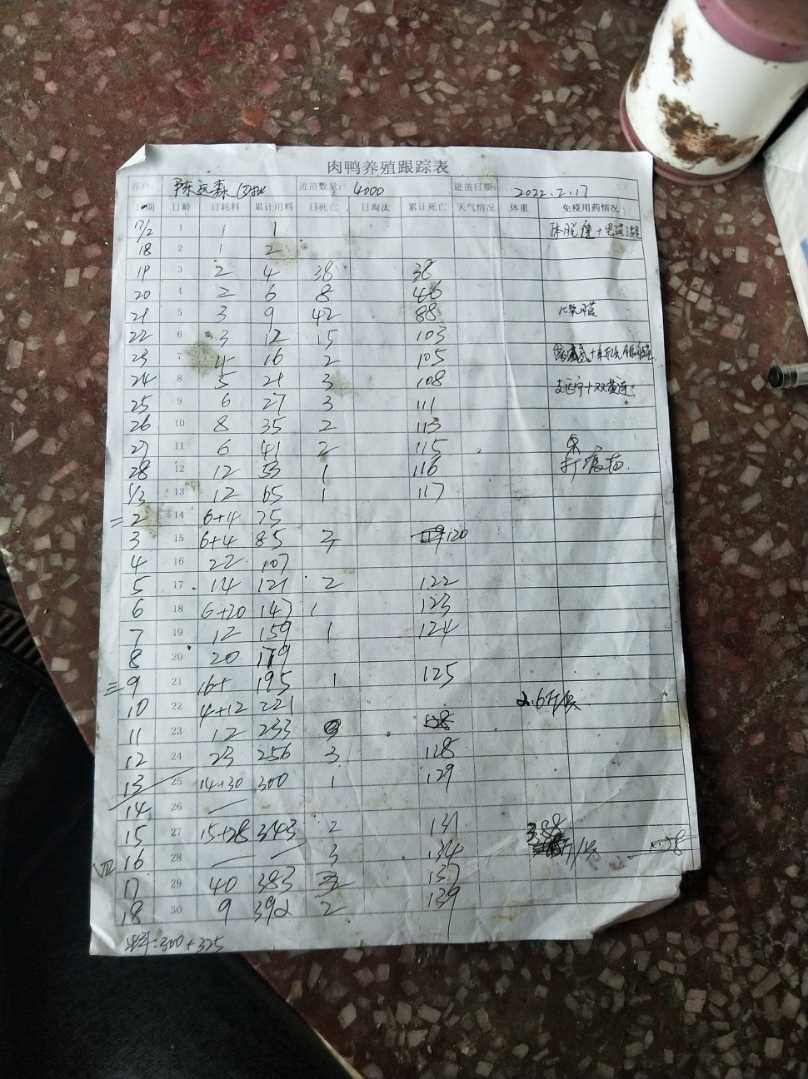 肉鸭养殖跟踪表
客户 陈远森 进苗数量: 4000 进苗日期: 2022.2.17
日期 日龄 日耗料 累计用料 日死亡 日淘汰 累计死亡 天气情况 体重 免疫用药情况
17/2 1 1 1
18 2 1 2
19 3 2 4 38 38
20 4 2 6 8 46
21 5 3 9 42 88
22 6 3 12 15 103
23 7 4 16 2 105
24 8 5 21 3 108
25 9 6 27 3 111
26 10 8 35 2 113
27 11 6 41 2 115
28 12 12 53 1 116 打疫苗.
1/3 13 12 65 1 117
=2 14 6+4 75
3 15 6+4 85 120
4 16 22 107
5 17 14 121 2 122
6 18 6+20 147 1 123
7 19 12 159 1 124
8 20 20 179
三9 21 16+ 195 1 125
10 22 4+12 221 2.6斤/只
11 23 12 233 128
12 24 23 256 3 128
13 25 14+30 300 1 129
14 26 —
15 27 15+28 343 2 131
16 28 — — 3 134
17 29 40 383 137
18 30 9 392 2 139
300+325